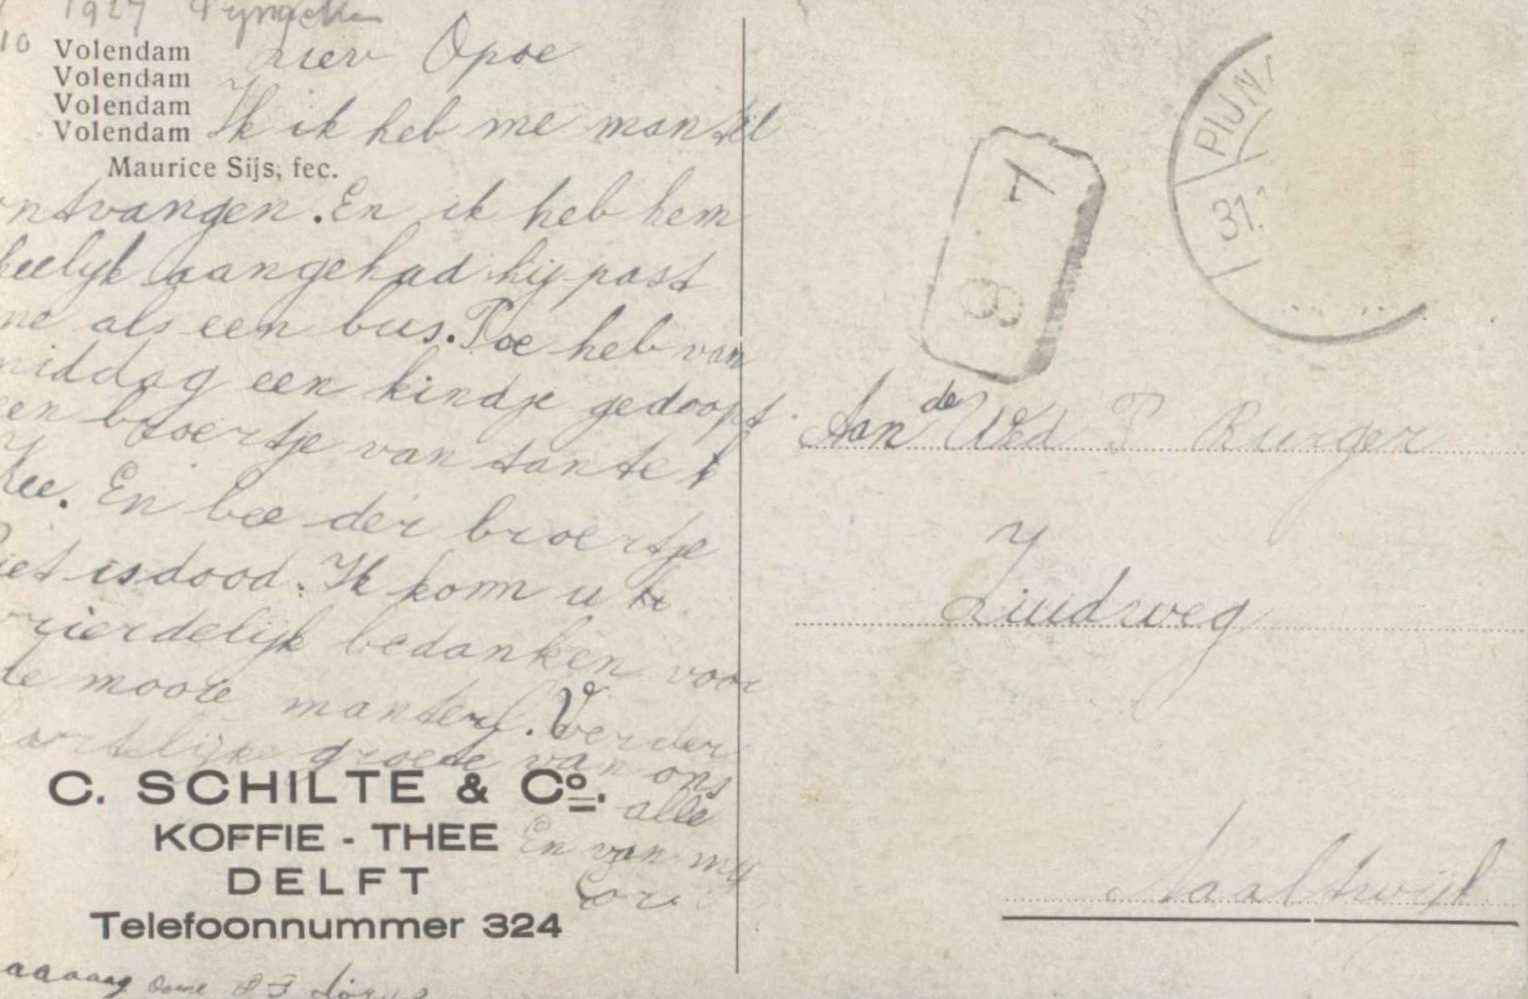 1927
10
Volendam
Volendam
Volendam
Volendam
Maurice Sijs, fec.
Liev Opoe
Ik ik heb me mantel
ontvangen. En ik heb hem
aangehad hij past
me als een bus. Toe heb van
middag een kindje gedoopt
een broertje van tante
Kee. En bee der broertje
Piet is dood. Ik kom u
vrierdelijk bedanken voor
de mooie mantel. Verder
hartelijke groete van ons
alle
En van mij
C. SCHILTE & Co.
KOFFIE - THEE
DELFT
Telefoonnummer 324
PIJNA
31.
Aan de Wed P Burger
Zuidweg
Naaltwijk